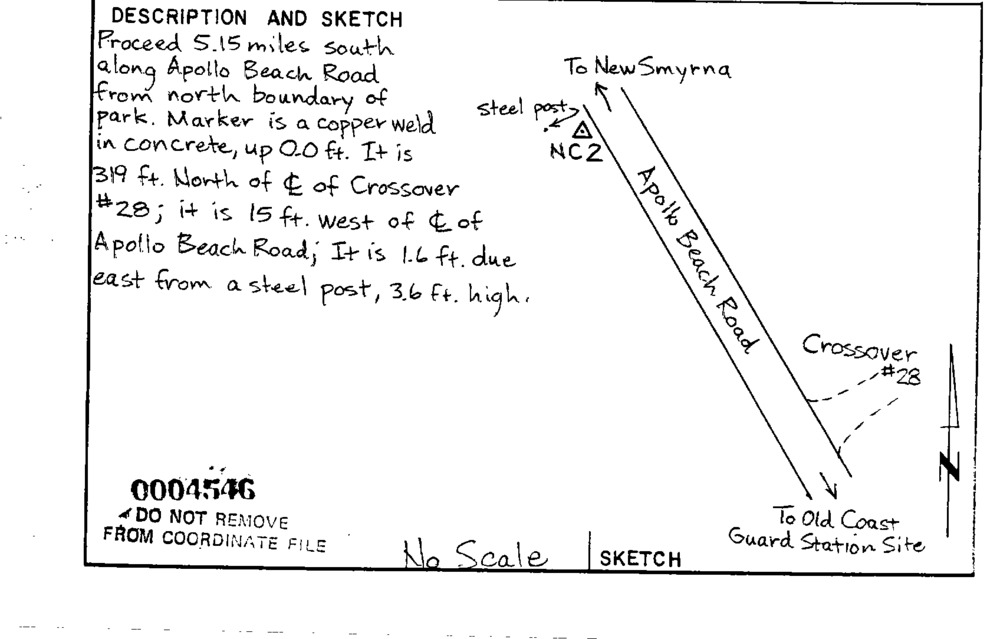 DESCRIPTION AND SKETCH
Proceed 5.15 miles south
along Apollo Beach Road
from north boundary of
park. Marker is a copperweld
in concrete, up 0.0 ft. It is
319 ft. North of ℄ of Crossover
#28; it is 15 ft. west of ℄ of
Apollo Beach Road; It is 1.6 ft. due
east from a steel post, 3.6 ft. high.
To New Smyrna
steel post
NC2
Apollo Beach Road
Crossover
#28
N
To Old Coast
Guard Station Site
0004546
DO NOT REMOVE
FROM COORDINATE FILE
No Scale
SKETCH